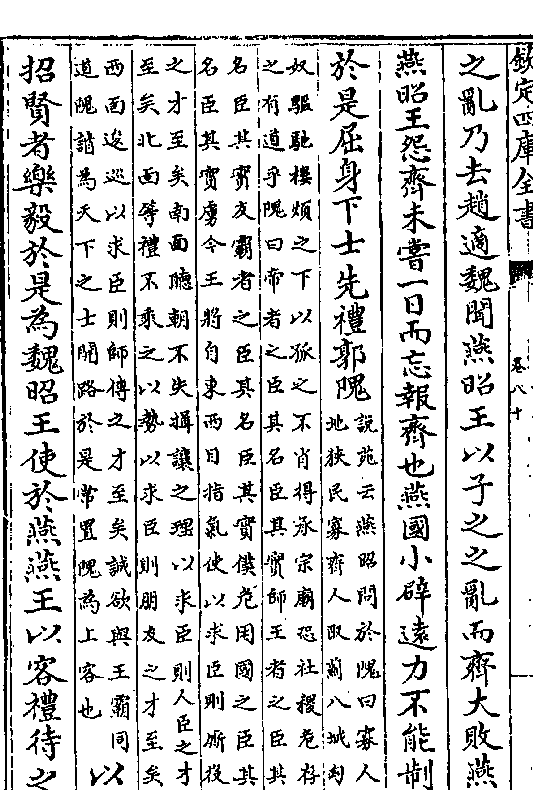 欽定四庫全書 卷八十
之亂乃去趙適魏聞燕昭王以子之之亂而齊大敗燕
燕昭王怨齊未嘗一日而忘報齊也燕國小辟遠力不能制
於是屈身下士先禮郭隗
說苑云燕昭問於隗曰寡人
地狹民寡齊人取薊八城匈
奴驅馳樓煩之下以孤之不肖得承宗廟恐社稷危存
之有道乎隗曰帝者之臣其名臣其實師王者之臣其
名臣其實友霸者之臣其名臣其實僕危困國之臣其
名臣其實虜今王將自東西目指氣使以求臣則廝役
之才至矣南面聽朝不失揖讓之理以求臣則人臣之才
至矣北面等禮不乘之以勢以求臣則朋友之才至矣
西面逡巡以求臣則師傅之才至矣誠欲與王霸同
道隗請為天下之士開路於是常置隗為上客也
以
招賢者樂毅於是為魏昭王使於燕燕王以客禮待之